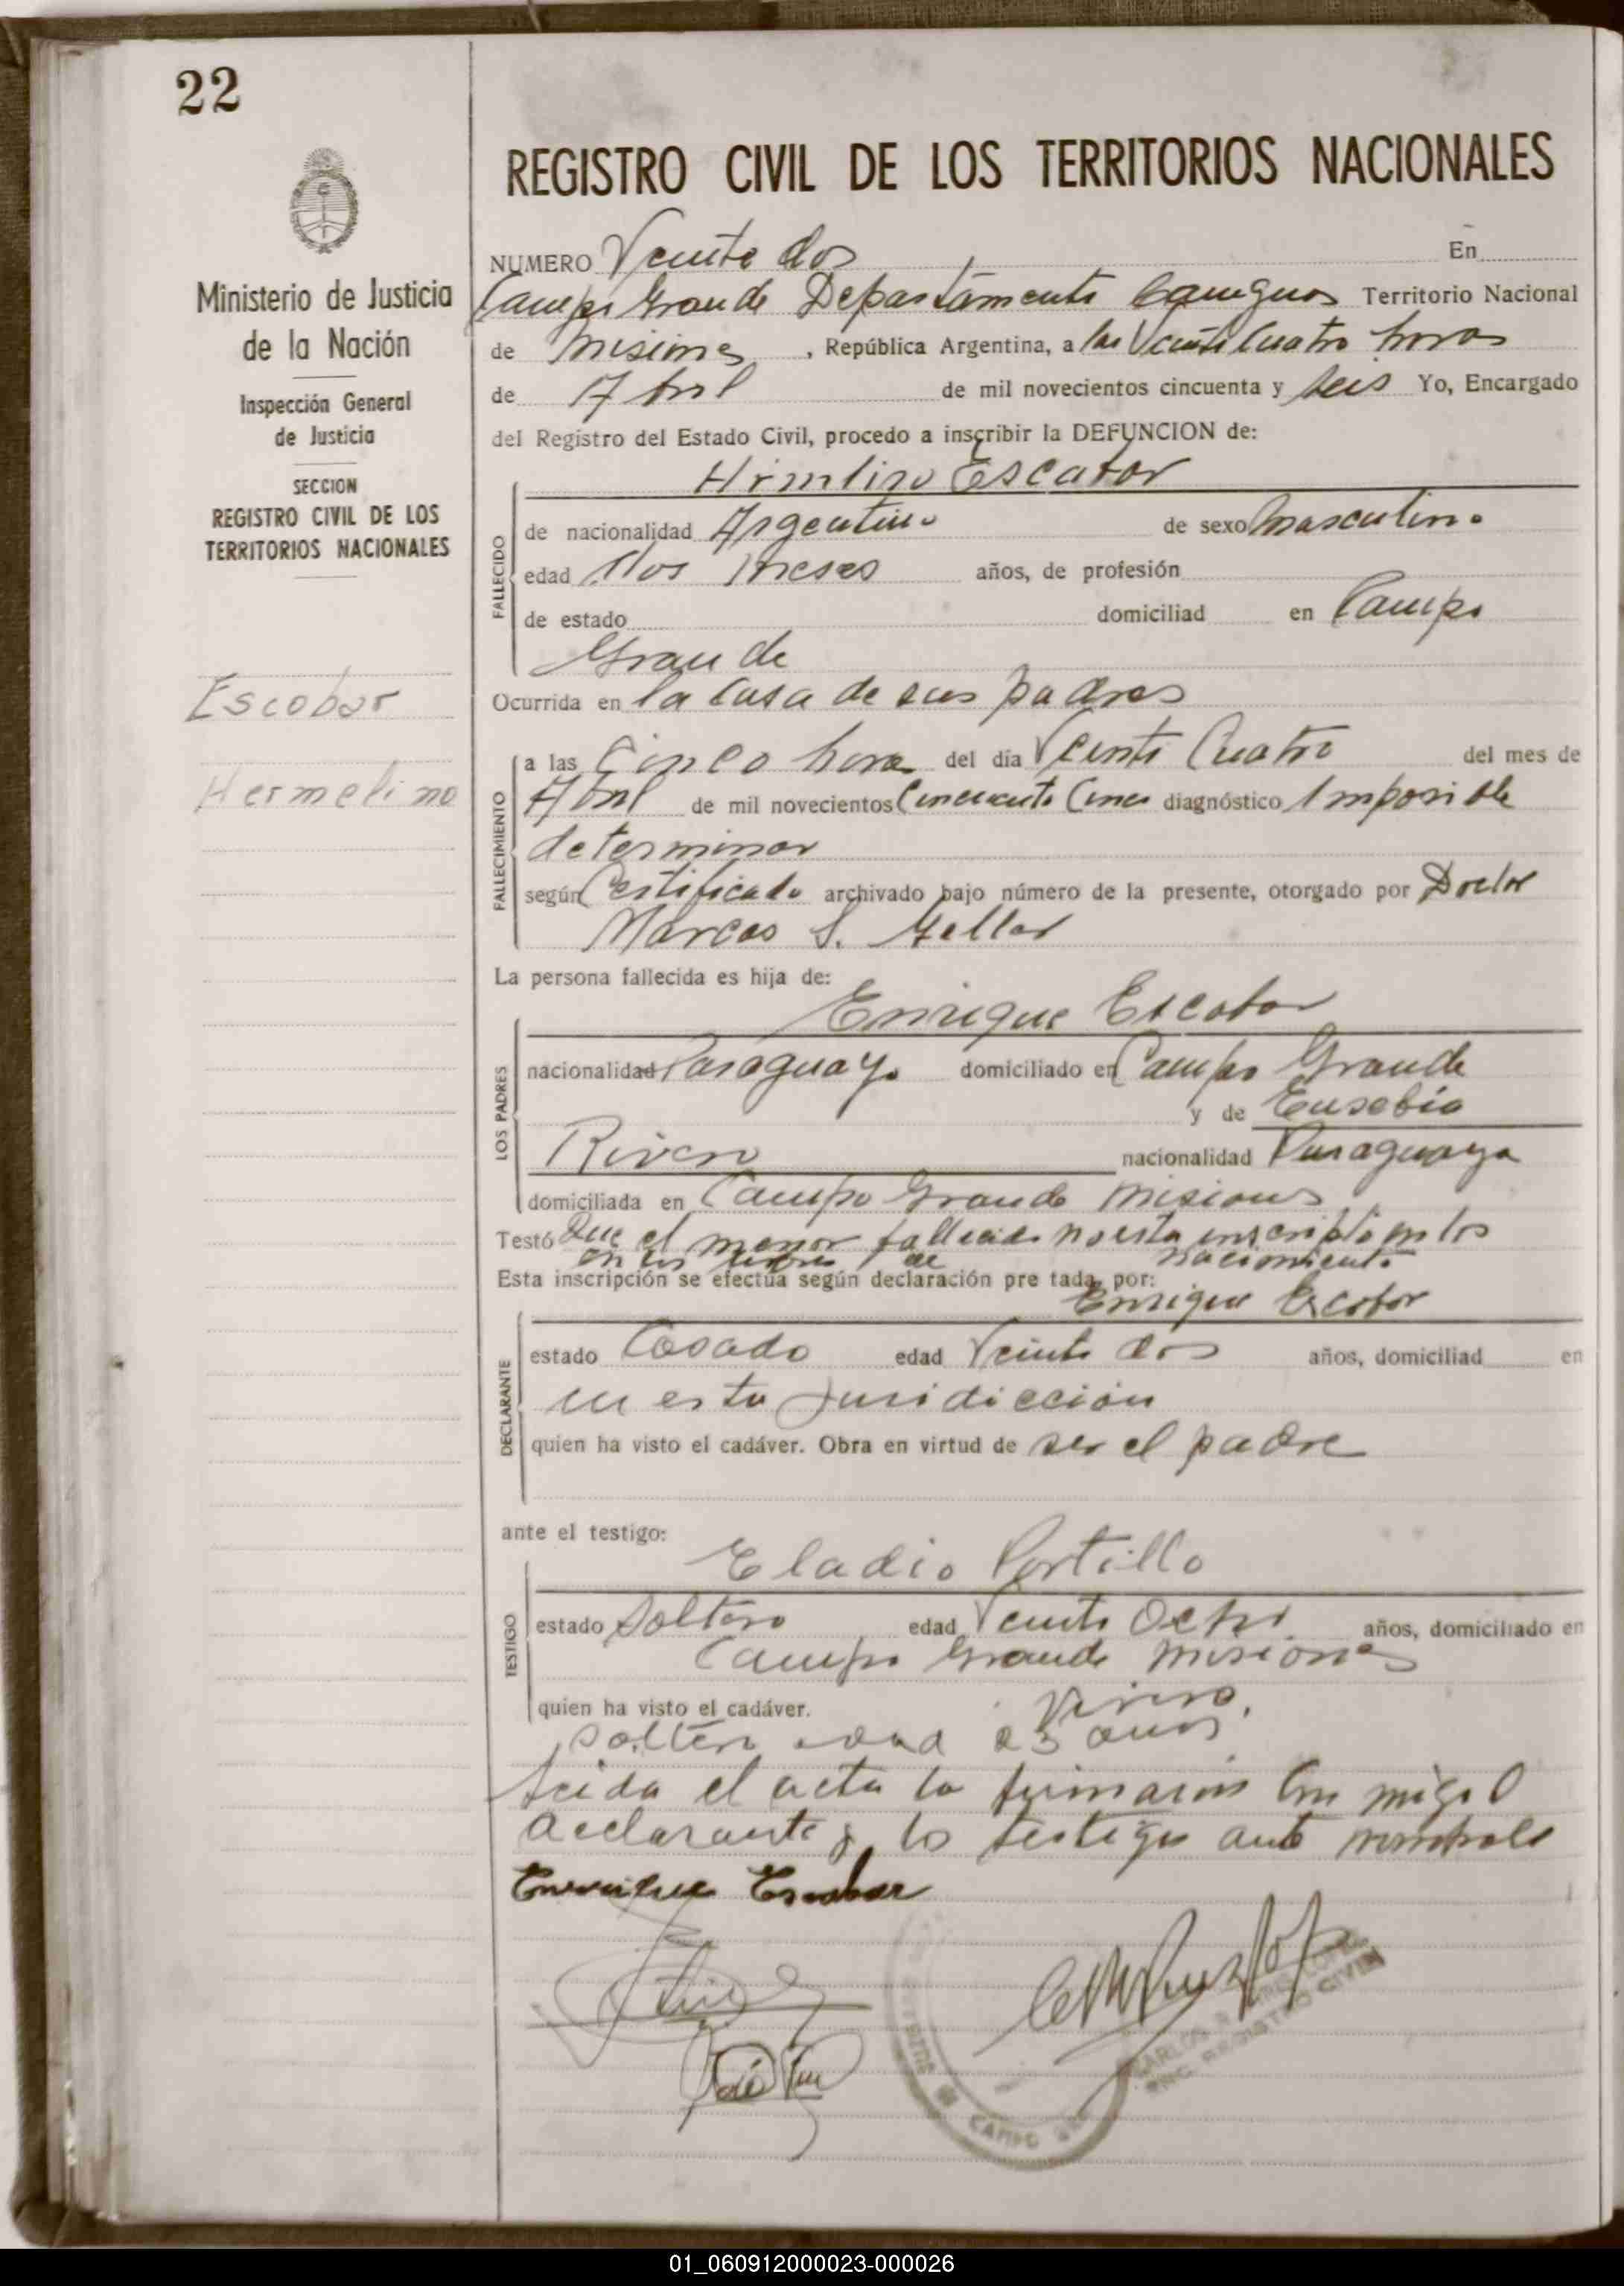 22
REGISTRO CIVIL DE LOS TERRITORIOS NACIONALES
Ministerio de Justicia
de la Nación
Inspección General
de Justicia
SECCION
REGISTRO CIVIL DE LOS
TERRITORIOS NACIONALES
Escobar
Hermelino
NUMERO Veinte dos En
Campo Grande Departamento Cainguas Territorio Nacional
de Misiones, República Argentina, a las Veinti Cuatro horas
de Abril de mil novecientos cincuenta y seis Yo, Encargado
del Registro del Estado Civil, procedo a inscribir la DEFUNCION de:
Escobar
FALLECIDO
de nacionalidad Argentino de sexo Masculino
edad Dos Meses años, de profesión
de estado domiciliad en Campo
Grande
Ocurrida en la Casa de sus padres
FALLECIMIENTO
a las Cinco hora del día Veinti Cuatro del mes de
Abril de mil novecientos Cincuenta Cinco diagnóstico Imposible
determinar
según Certificado archivado bajo número de la presente, otorgado por Doctor
Marcos S. Gellar
La persona fallecida es hija de:
Enrique Escobar
LOS PADRES
nacionalidad Paraguayo domiciliado en Campo Grande
y de Eusebia
Rivero nacionalidad Paraguaya
domiciliada en Campo Grande Misiones
Testó Que el menor fallecido no esta inscripto en los
en los libros de nacimiento
Esta inscripción se efectúa según declaración pre tada por:
Enrique Escobar
DECLARANTE
estado Casado edad Veinte dos años, domiciliad en
en esta Juridicción
quien ha visto el cadáver. Obra en virtud de ser el padre
ante el testigo:
Eladio Portillo
TESTIGO
estado Soltero edad Veinte Ocho años, domiciliado en
Campo Grande Misiones
quien ha visto el cadáver.
soltero edad 23 anos
Leida el acta la firmaron
declarante y lo testigo
Enrique Escobar
CAMPO
REGISTRO CIVIL
01_060912000023-000026